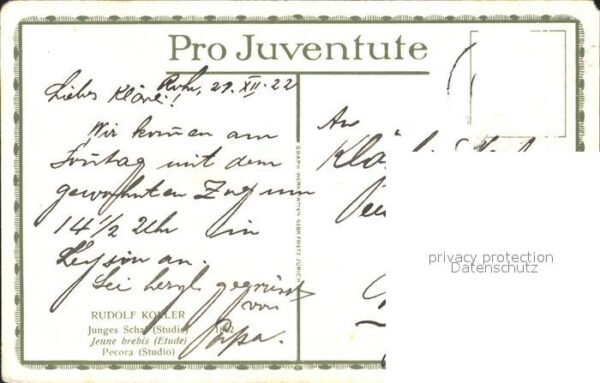 Pro Juventute
Rohr, 29. XII. 22
Liebes Kläre!
Wir kommen am
Sonntag mit dem
gewohnten Zug um
14 1/2 Uhr in
Leysin an.
Sei herzl. gegrüsst
von
Papa.
RUDOLF KOLLER
Junges Schaf (Studie)
Jenne brebis (Etude)
Pecora (Studio)
GRAPH. WERKSTÄTTEN GEBR. FRETZ, ZÜRICH
An
privacy protection
Datenschutz